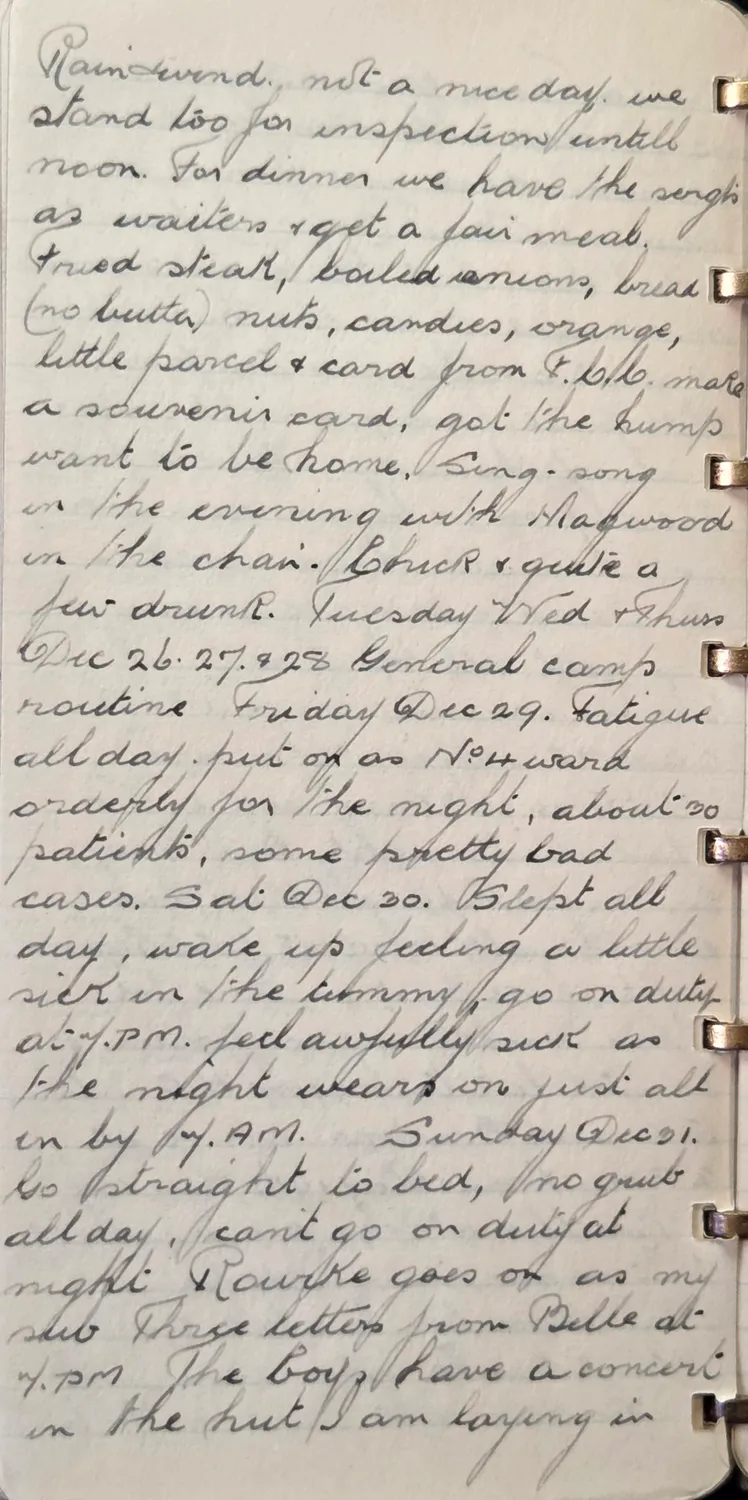 Rain & wind. not a nice day. we
stand too for inspection untill
noon. For dinner we have the sergts
as waiters & get a fair meal.
Fried steak, boiled onions, bread
(no butter) nuts, candies, orange,
little parcel & card from F.C.C. make
a souvenir card, got the hump
want to be home. Sing-song
in the evening with Magwood
in the chair. Chuck & quite a
few drunk. Tuesday Wed & Thurs
Dec 26. 27. & 28 General camp
routine Friday Dec 29. Fatigue
all day. put on as No 4 ward
orderly for the night, about 30
patients, some pretty bad
cases. Sat Dec 30. Slept all
day, wake up feeling a little
sick in the tummy, go on duty
at 7.PM. feel awfully sick as
the night wears on just all
in by 7.AM. Sunday Dec 31.
Go straight to bed, no grub
all day, can't go on duty at
night & Rourke goes on as my
sub Three letters from Belle at
7.PM The boys have a concert
in the hut I am laying in